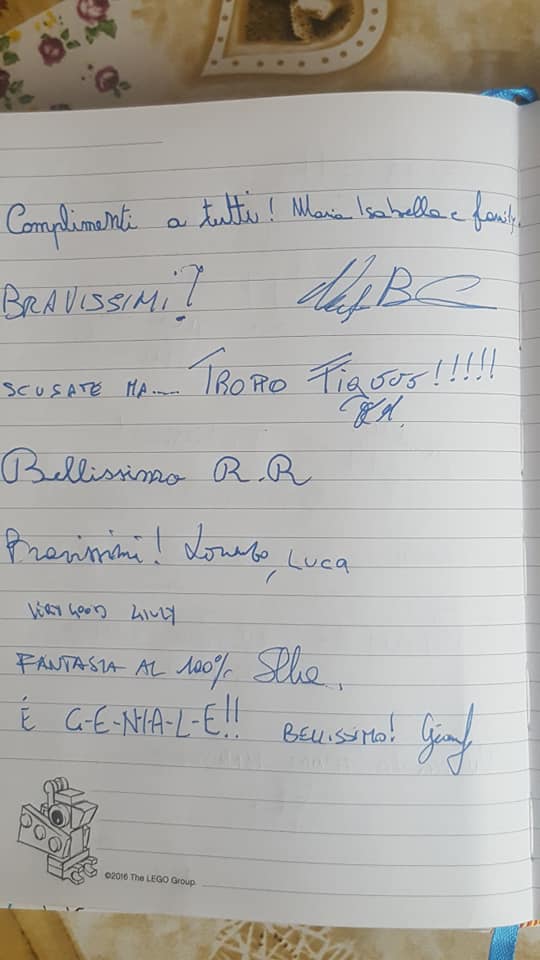 Complimenti a tutti! Maria Isabella e family.
BRAVISSIMI!
SCUSATE MA..... TROPPO FIGOOO!!!!!
Bellissimo R.R
Bravissimi! Lorenzo, LUCA
VERY GOOD
FANTASIA AL 100%
È G-E-N-I-A-L-E!! BELLISSIMO!
©2016 The LEGO Group.